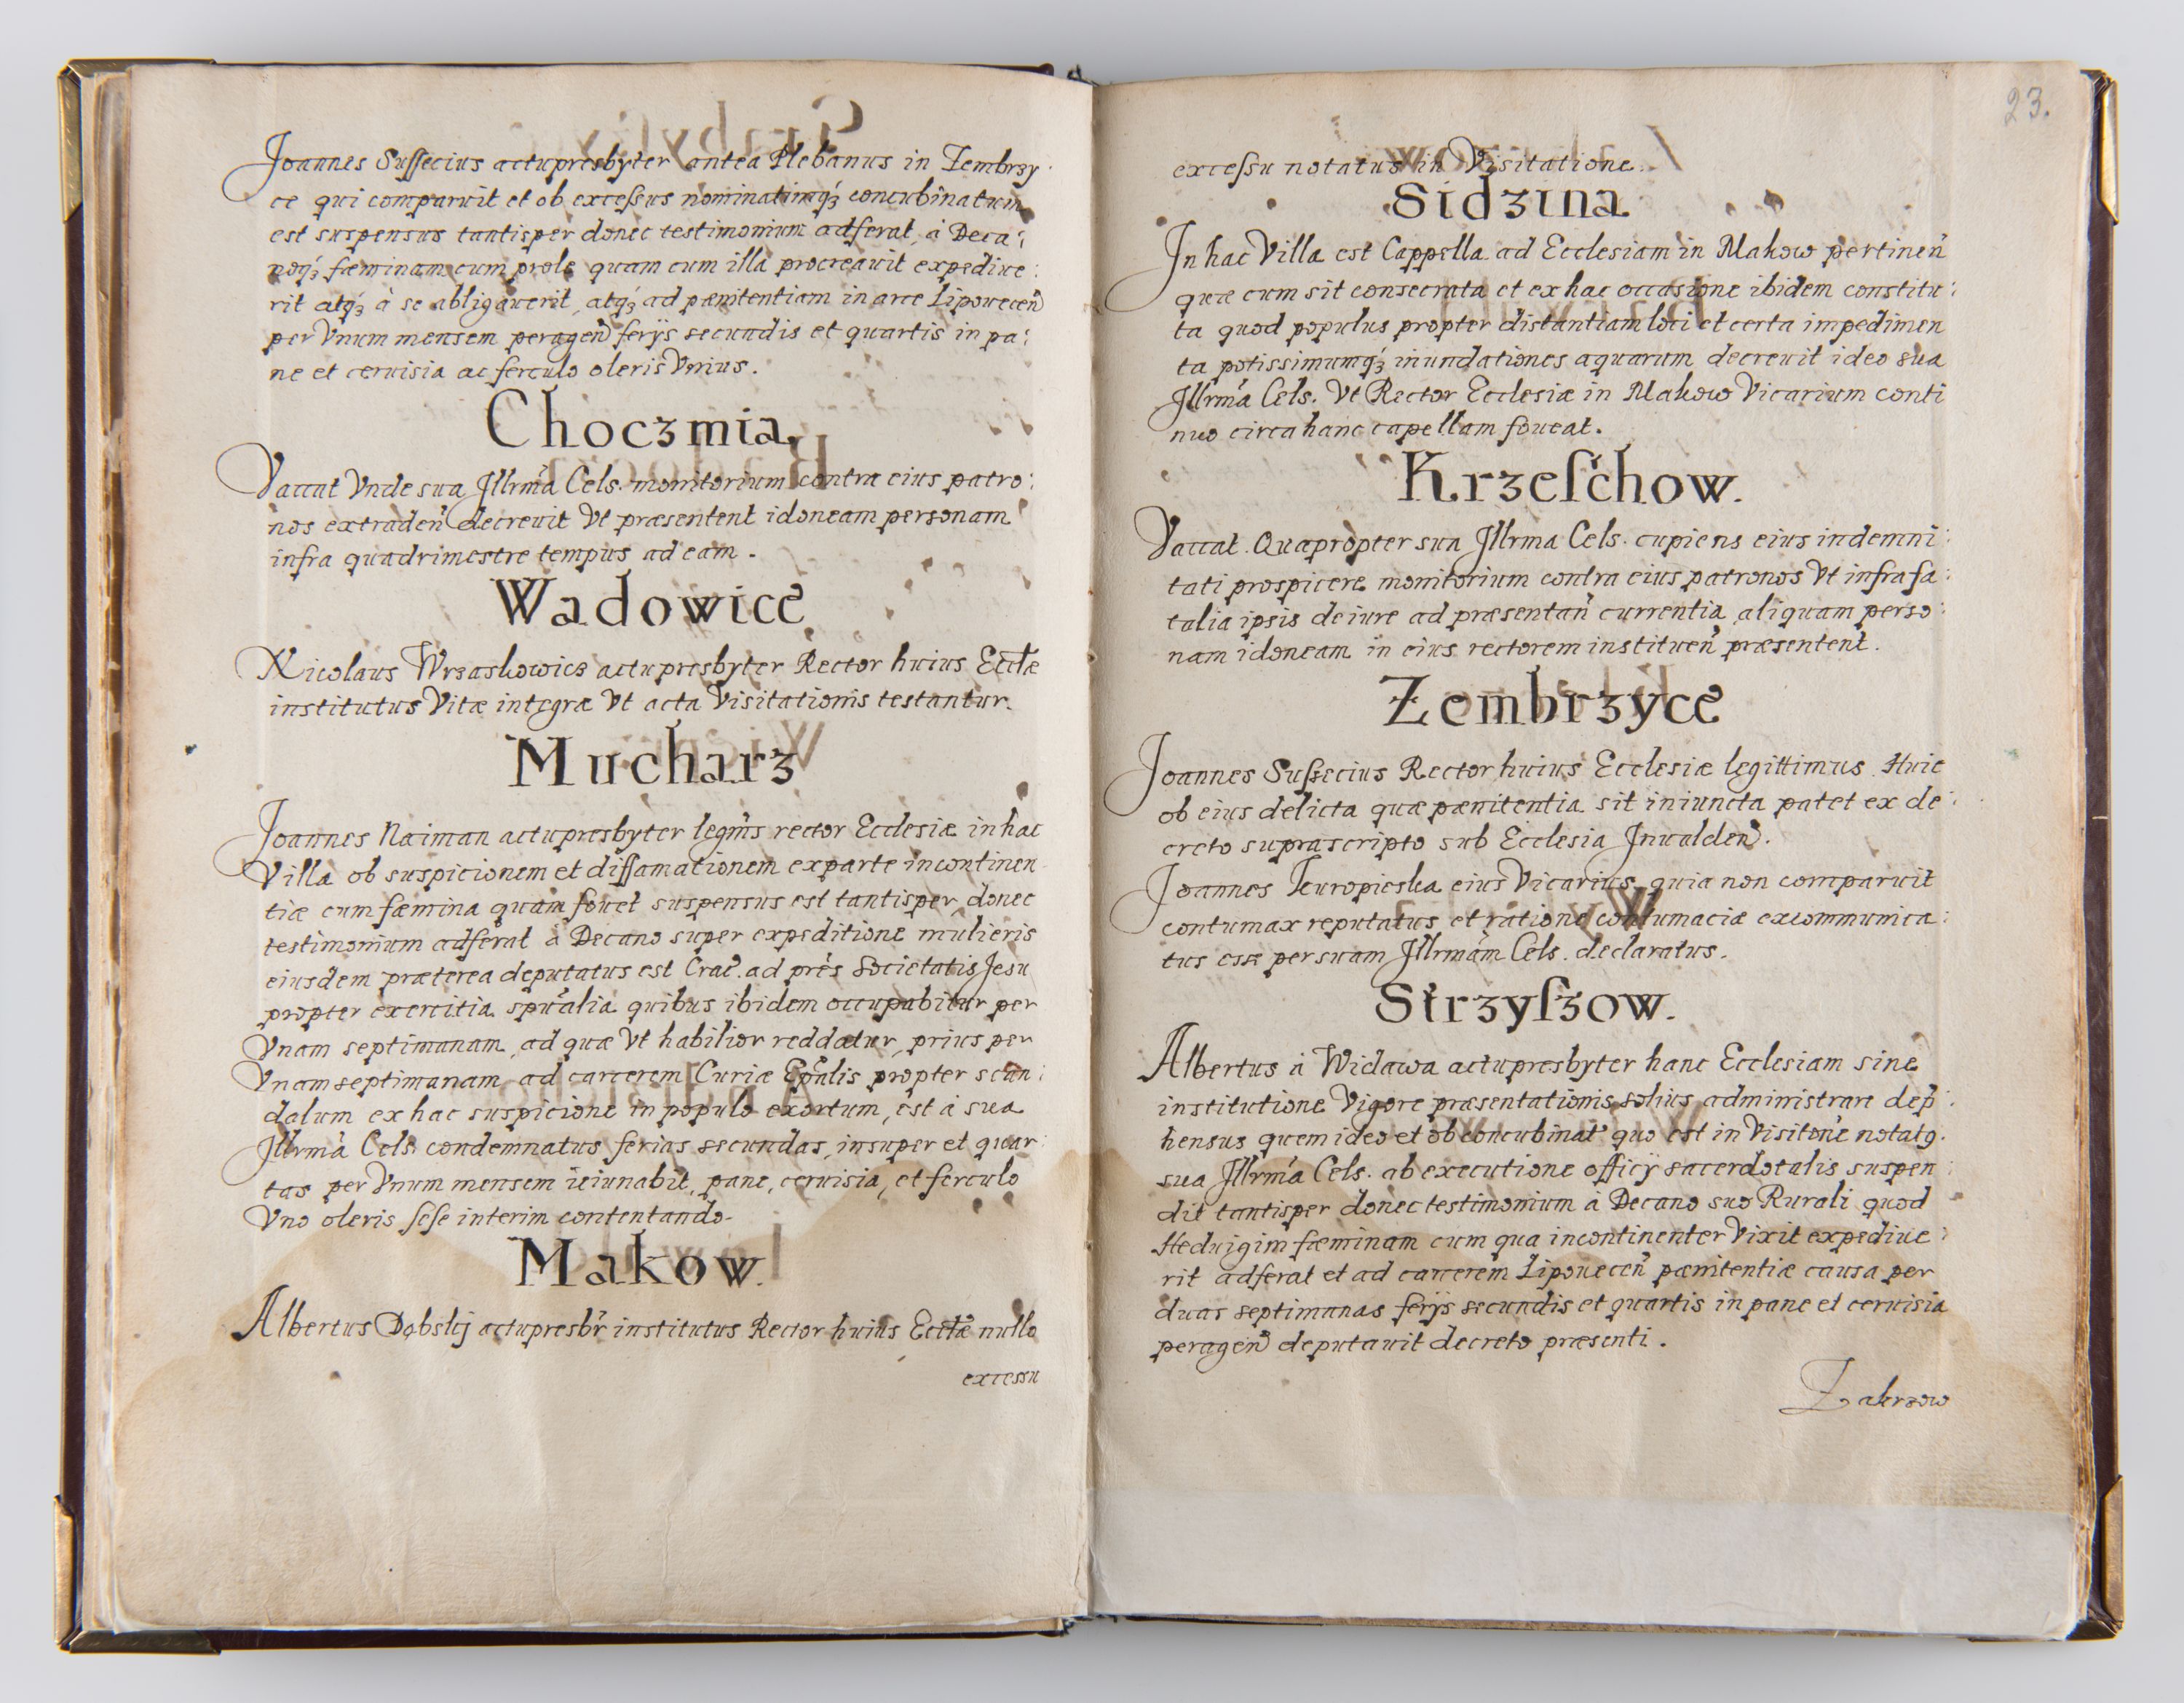 Joannes Sussecius actu presbyter antea Plebanus in Zembrzy
ce qui comparuit et ob excessus nominatimq́ꝫ concubinatum
est suspensus tantisper donec testimonium adferat, à Deca:
noq́ꝫ fæminam cum prole quam cum illa procreauit expediue:
rit atq́ꝫ à se abligauerit, atq́ꝫ ad pænitentiam in arce Lipouecen̄
per Vnum mensem peragen̄ ferijs secundis et quartis in pa:
ne et ceruisia ac ferculo oleris Vnius.
Choczmia
Vaccat Vnde sua Jllrmá Cels. monitorium contra eius patro:
nos extraden̄ decreuit Vt præsentent idoneam personam
infra quadrimestre tempus ad eam.
Wadowice
Nicolaus Wrzaskowicz actu presbyter Rector huius Eccl̄æ
institutus Vitæ integræ Vt acta Visitationis testantur.
Mucharz
Joannes Naiman actu presbyter legm̄s rector Ecclesiæ in hac
Villa ob suspicionem et diffamationem ex parte incontinen
tiæ cum fæmina quam fouet suspensus est tantisper, donec
testimonium adferat à Decano super expeditione mulieris
eiusdem præterea deputatus est Crac̄. ad prēs Societatis Jesu
propter exercitia spūalia quibus ibidem occupabitur per
Vnam septimanam, ad quæ Vt habilior reddatur, prius per
Vnam septimanam ad carcerem Curiæ Ep̄alis propter scan:
dalum ex hac suspicione in populo exortum, est à sua
Jllrmá Cels. condemnatus ferias secundas, insuper et quar:
tas per Vnum mensem ieiunabit, pane, ceruisia, et ferculo
Vno oleris sese interim contentando.
Makow.
Albertus Dąbskij actu presbr̄ institutus Rector huius Eccl̄æ nullo
excessu
23.
excessu notatus in Visitatione.
Sidzina
Jn hac Villa est Cappella ad Ecclesiam in Makow pertinen̄
quæ cum sit consecrata et ex hac occasione ibidem constitu:
ta quod populus propter distantiam loci et certa impedimen
ta potissimumq́ꝫ inundationes aquarum decreuit ideo sua
Jllrmá Cels. Vt Rector Ecclesiæ in Makow Vicarium conti
nuo circa hanc capellam foueat.
Krzeschow.
Vaccat. Quapropter sua Jllrma Cels. cupiens eius indemni:
tati prospicere monitorium contra eius patronos Vt infra fa:
talia ipsis de iure ad præsentan̄ currentia aliquam perso:
nam idoneam in eius rectorem instituen̄ præsentent.
Zembrzyce
Joannes Sussecius Rector huius Ecclesiæ legittimus. Huic
ob eius delicta quæ pænitentia sit iniuncta patet ex de:
creto suprascripto sub Ecclesia Jnualden̄.
Joannes Kuropieska eius Vicarius quia non comparuit
contumax reputatus et ratione contumaciæ excommunica:
tus esse per suam Jllrmám Cels. declaratus.
Strzyszow.
Albertus à Widawa actu presbyter hanc Ecclesiam sine
institutione Vigore præsentationis solius administrare dep̄:
hensus quem ideo et ob concubinat' quo est in Visitōne notatꝯ.
sua Jllrmá Cels. ab executione officij sacerdotalis suspen:
dit tantisper donec testimonium à Decano suo Rurali quod
Heduigim fæminam cum qua incontinenter Vixit expediue:
rit adferat et ad carcerem Lipouecen̄ pænitentiæ causa per
duas septimanas ferijs secundis et quartis in pane et ceruisia
peragen̄ deputauit decreto præsenti.
Zakrzow